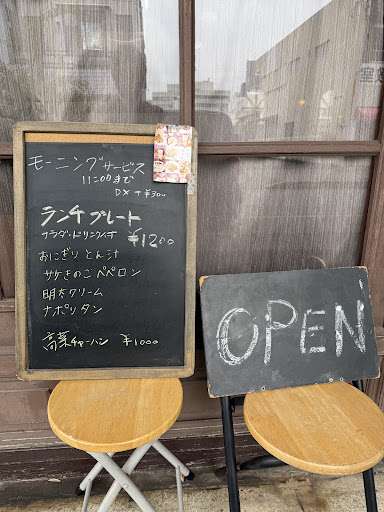 モーニングサービス
11:00まで
DX +¥300
ランチプレート
サラダ・ドリンク付 ¥1200
おにぎり とん汁
サケきのこペペロン
明太クリーム
ナポリタン
高菜チャーハン ¥1000
OPEN